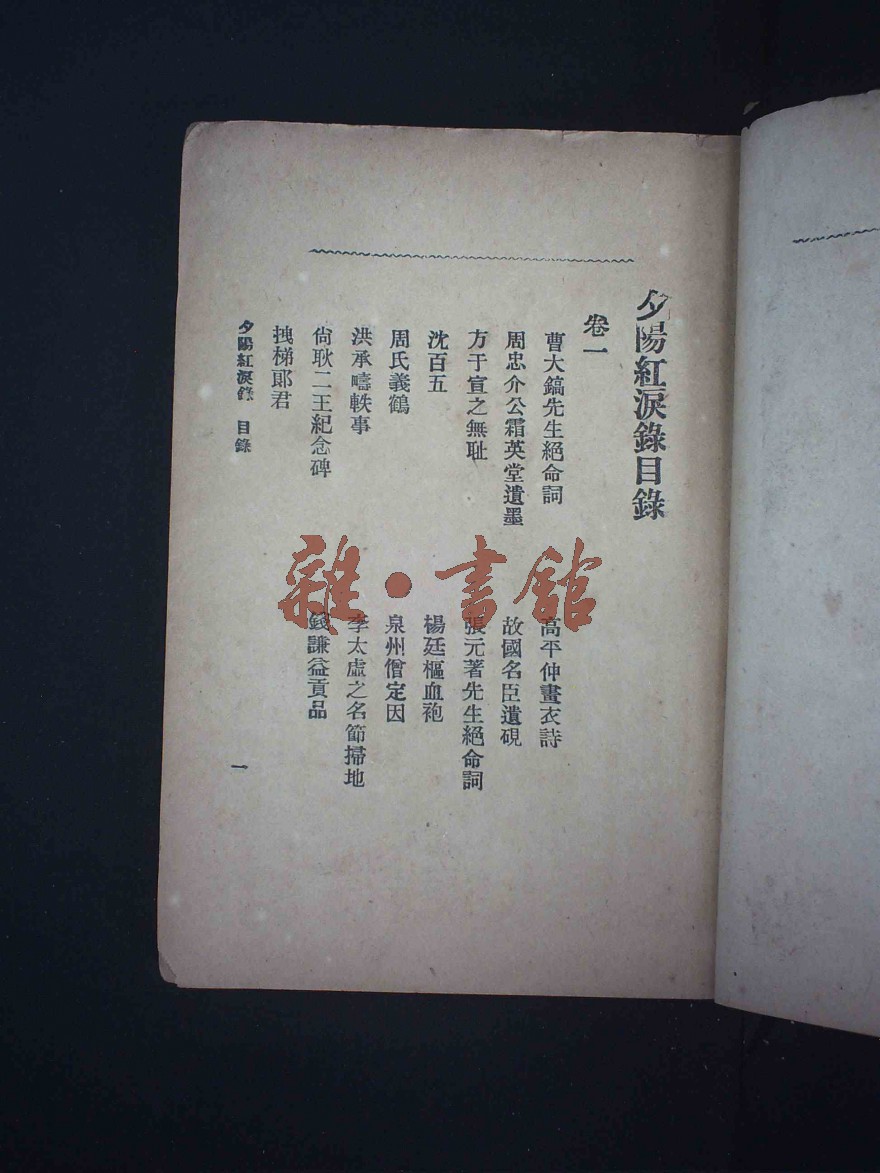 夕陽紅淚錄目錄
卷一
曹大鎬先生絕命詞
高平仲畫衣詩
周忠介公霜英堂遺墨
故國名臣遺硯
方于宣之無耻
張元著先生絕命詞
沈百五
楊廷樞血袍
周氏義鶴
泉州僧定因
洪承疇軼事
李太虛之名節掃地
尙耿二王紀念碑
錢謙益貢品
拽梯郞君
夕陽紅淚錄 目錄
一
雜·書館